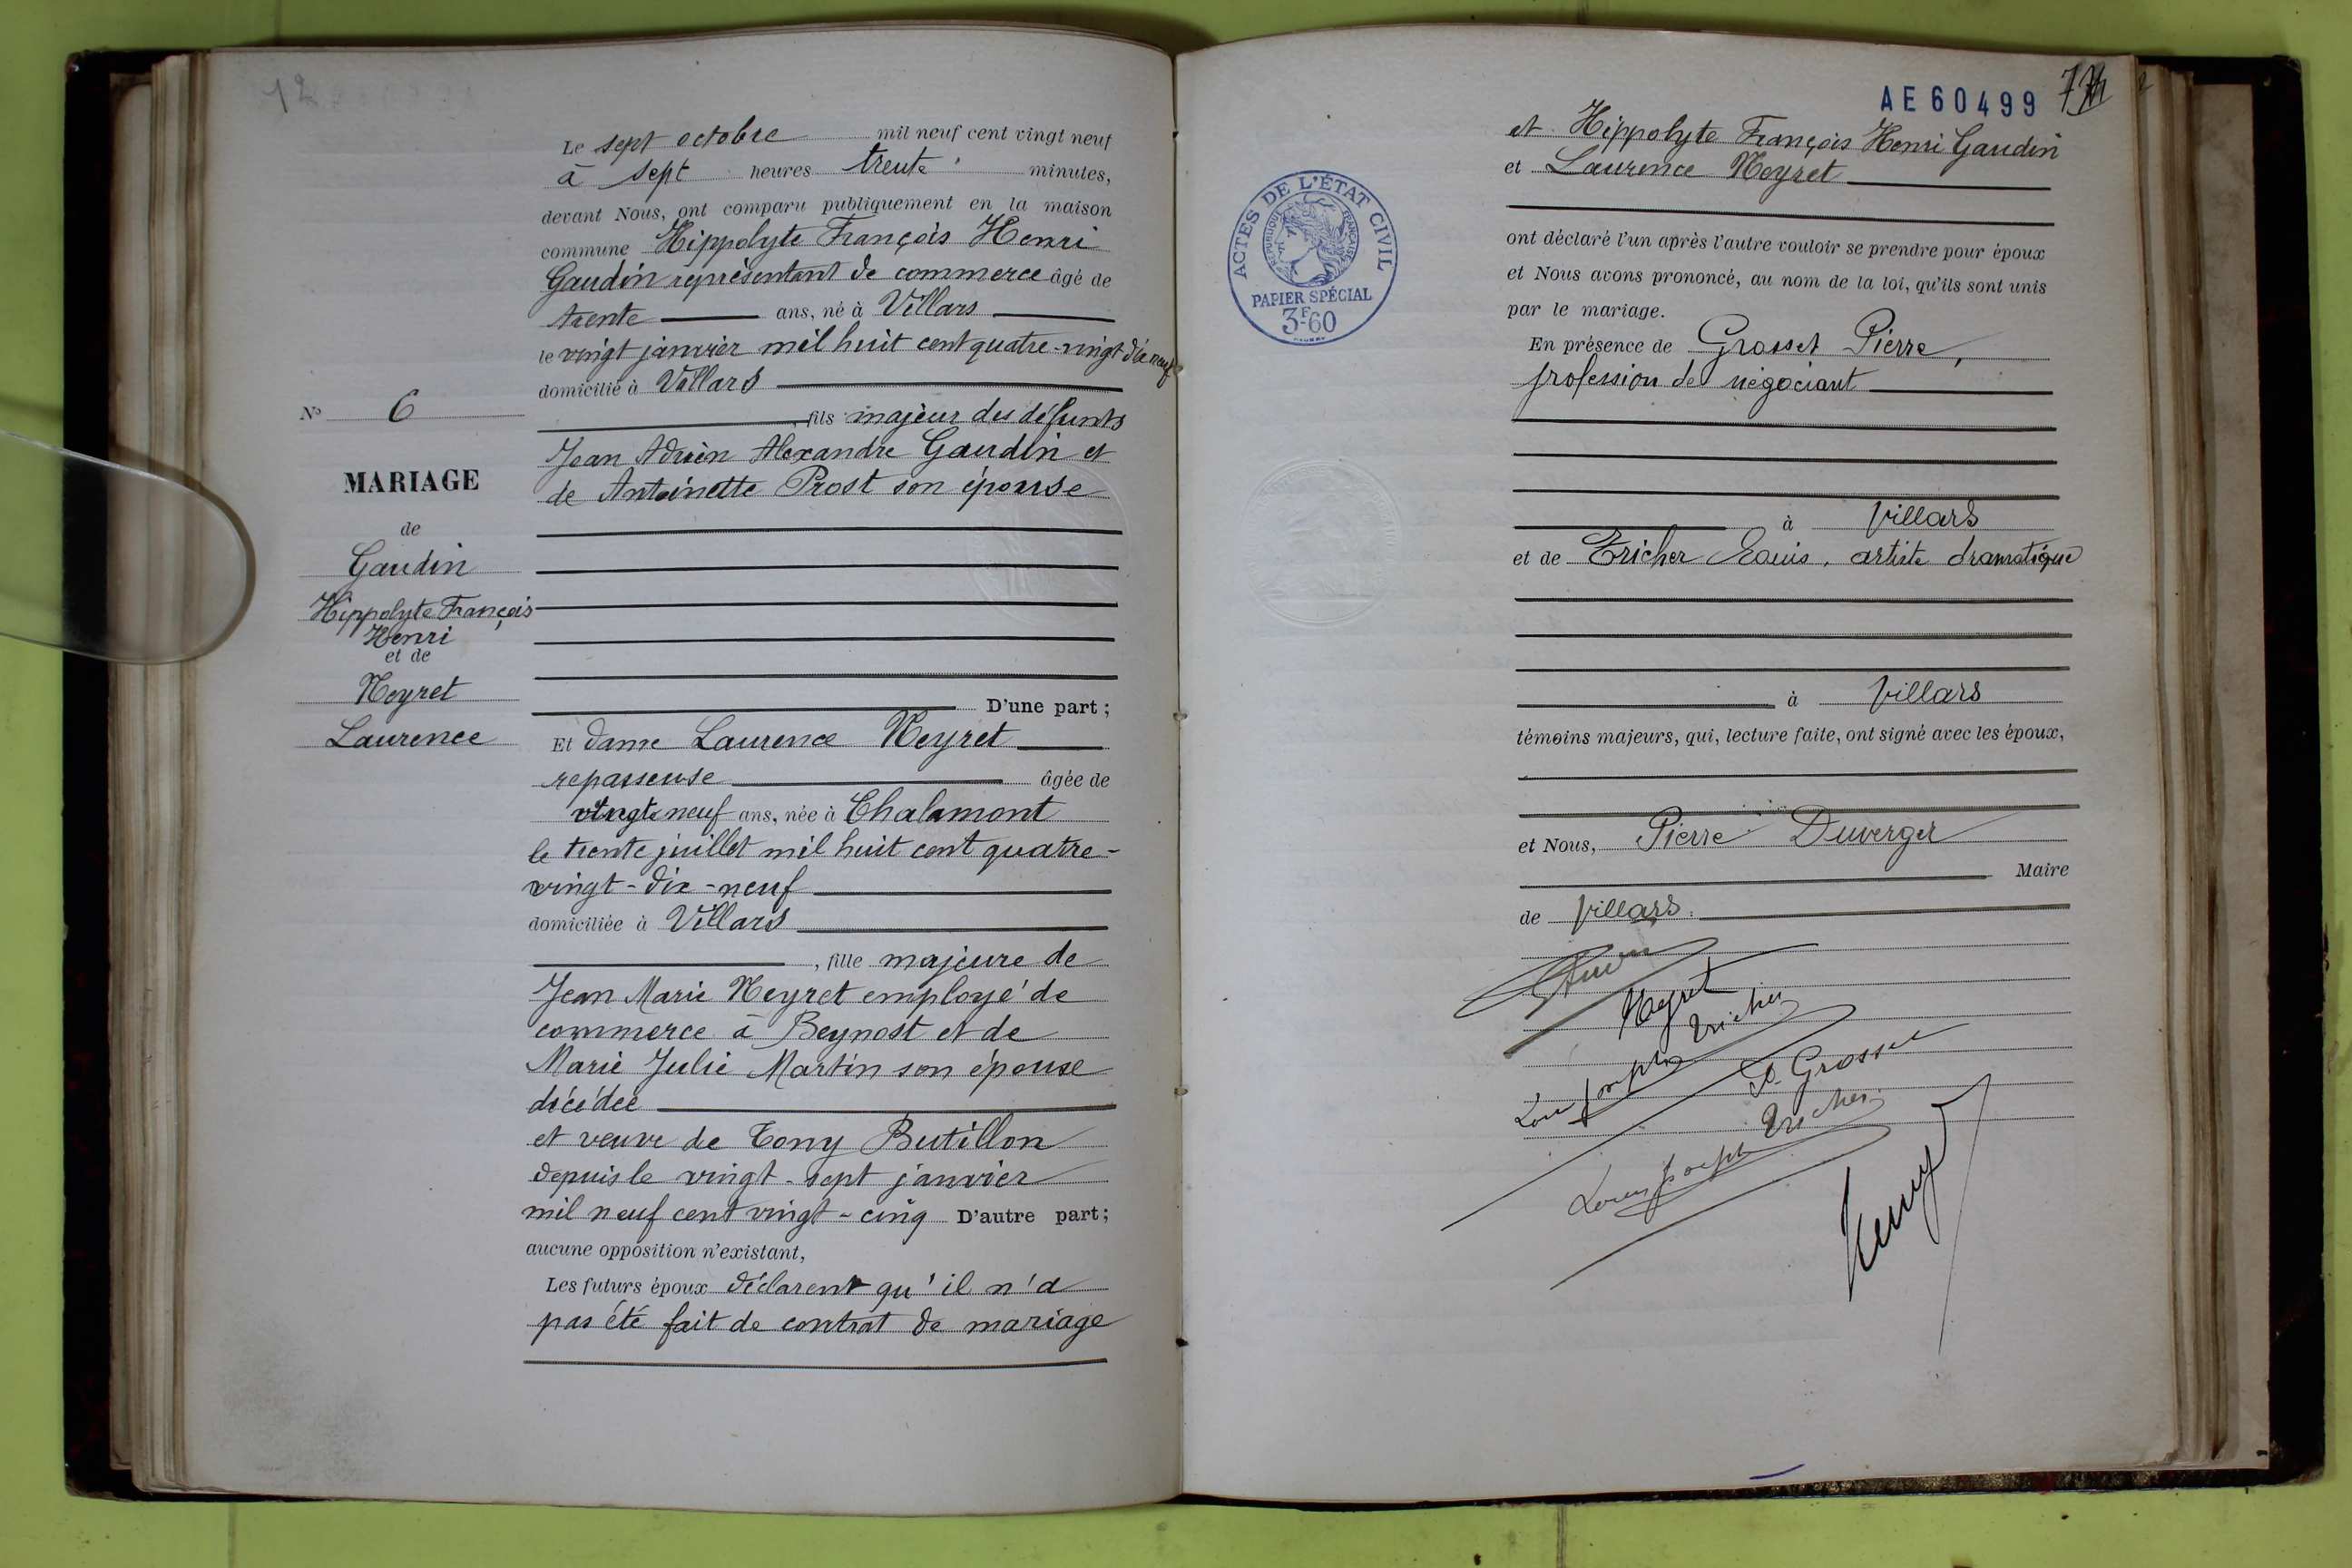 12
Le sept octobre mil neuf cent vingt neuf
à sept heures trente minutes,
devant Nous, ont comparu publiquement en la maison
commune Hippolyte François Henri
Gaudin représentant de commerce âgé de
trente ans, né à Villars
le vingt janvier mil huit cent quatre-vingt dix neuf
domicilié à Villars
, fils majeur des défunts
Jean Adrien Alexandre Gaudin et
de Antoinette Prost son épouse
D'une part ;
Et dame Laurence Neyret
repasseuse âgée de
vingt neuf ans, née à Chalamont
le trente juillet mil huit cent quatre-
vingt-dix-neuf
domiciliée à Villars
, fille majeure de
Jean Marie Neyret employé de
commerce à Beynost et de
Marie Julie Martin son épouse
décédée
et veuve de Tony Butillon
depuis le vingt-sept janvier
mil neuf cent vingt-cinq D'autre part ;
aucune opposition n'existant,
Les futurs époux déclarent qu'il n'a
pas été fait de contrat de mariage
N° 6
MARIAGE
de
Gaudin
Hippolyte François
Henri
et de
Neyret
Laurence
AE60499
et Hippolyte François Henri Gaudin
et Laurence Neyret
ont déclaré l'un après l'autre vouloir se prendre pour époux
et Nous avons prononcé, au nom de la loi, qu'ils sont unis
par le mariage.
En présence de Grosset Pierre,
profession de négociant
à Villars
et de Tricher Louis, artiste dramatique
à Villars
témoins majeurs, qui, lecture faite, ont signé avec les époux,
et Nous, Pierre Duverger
Maire
de Villars.
Neyret
Tricher
Louis Joseph
P. Grosset
Tricher
Louis Joseph
ACTES DE L'ÉTAT CIVIL
RÉPUBLIQUE FRANÇAISE
PAPIER SPÉCIAL
3F60